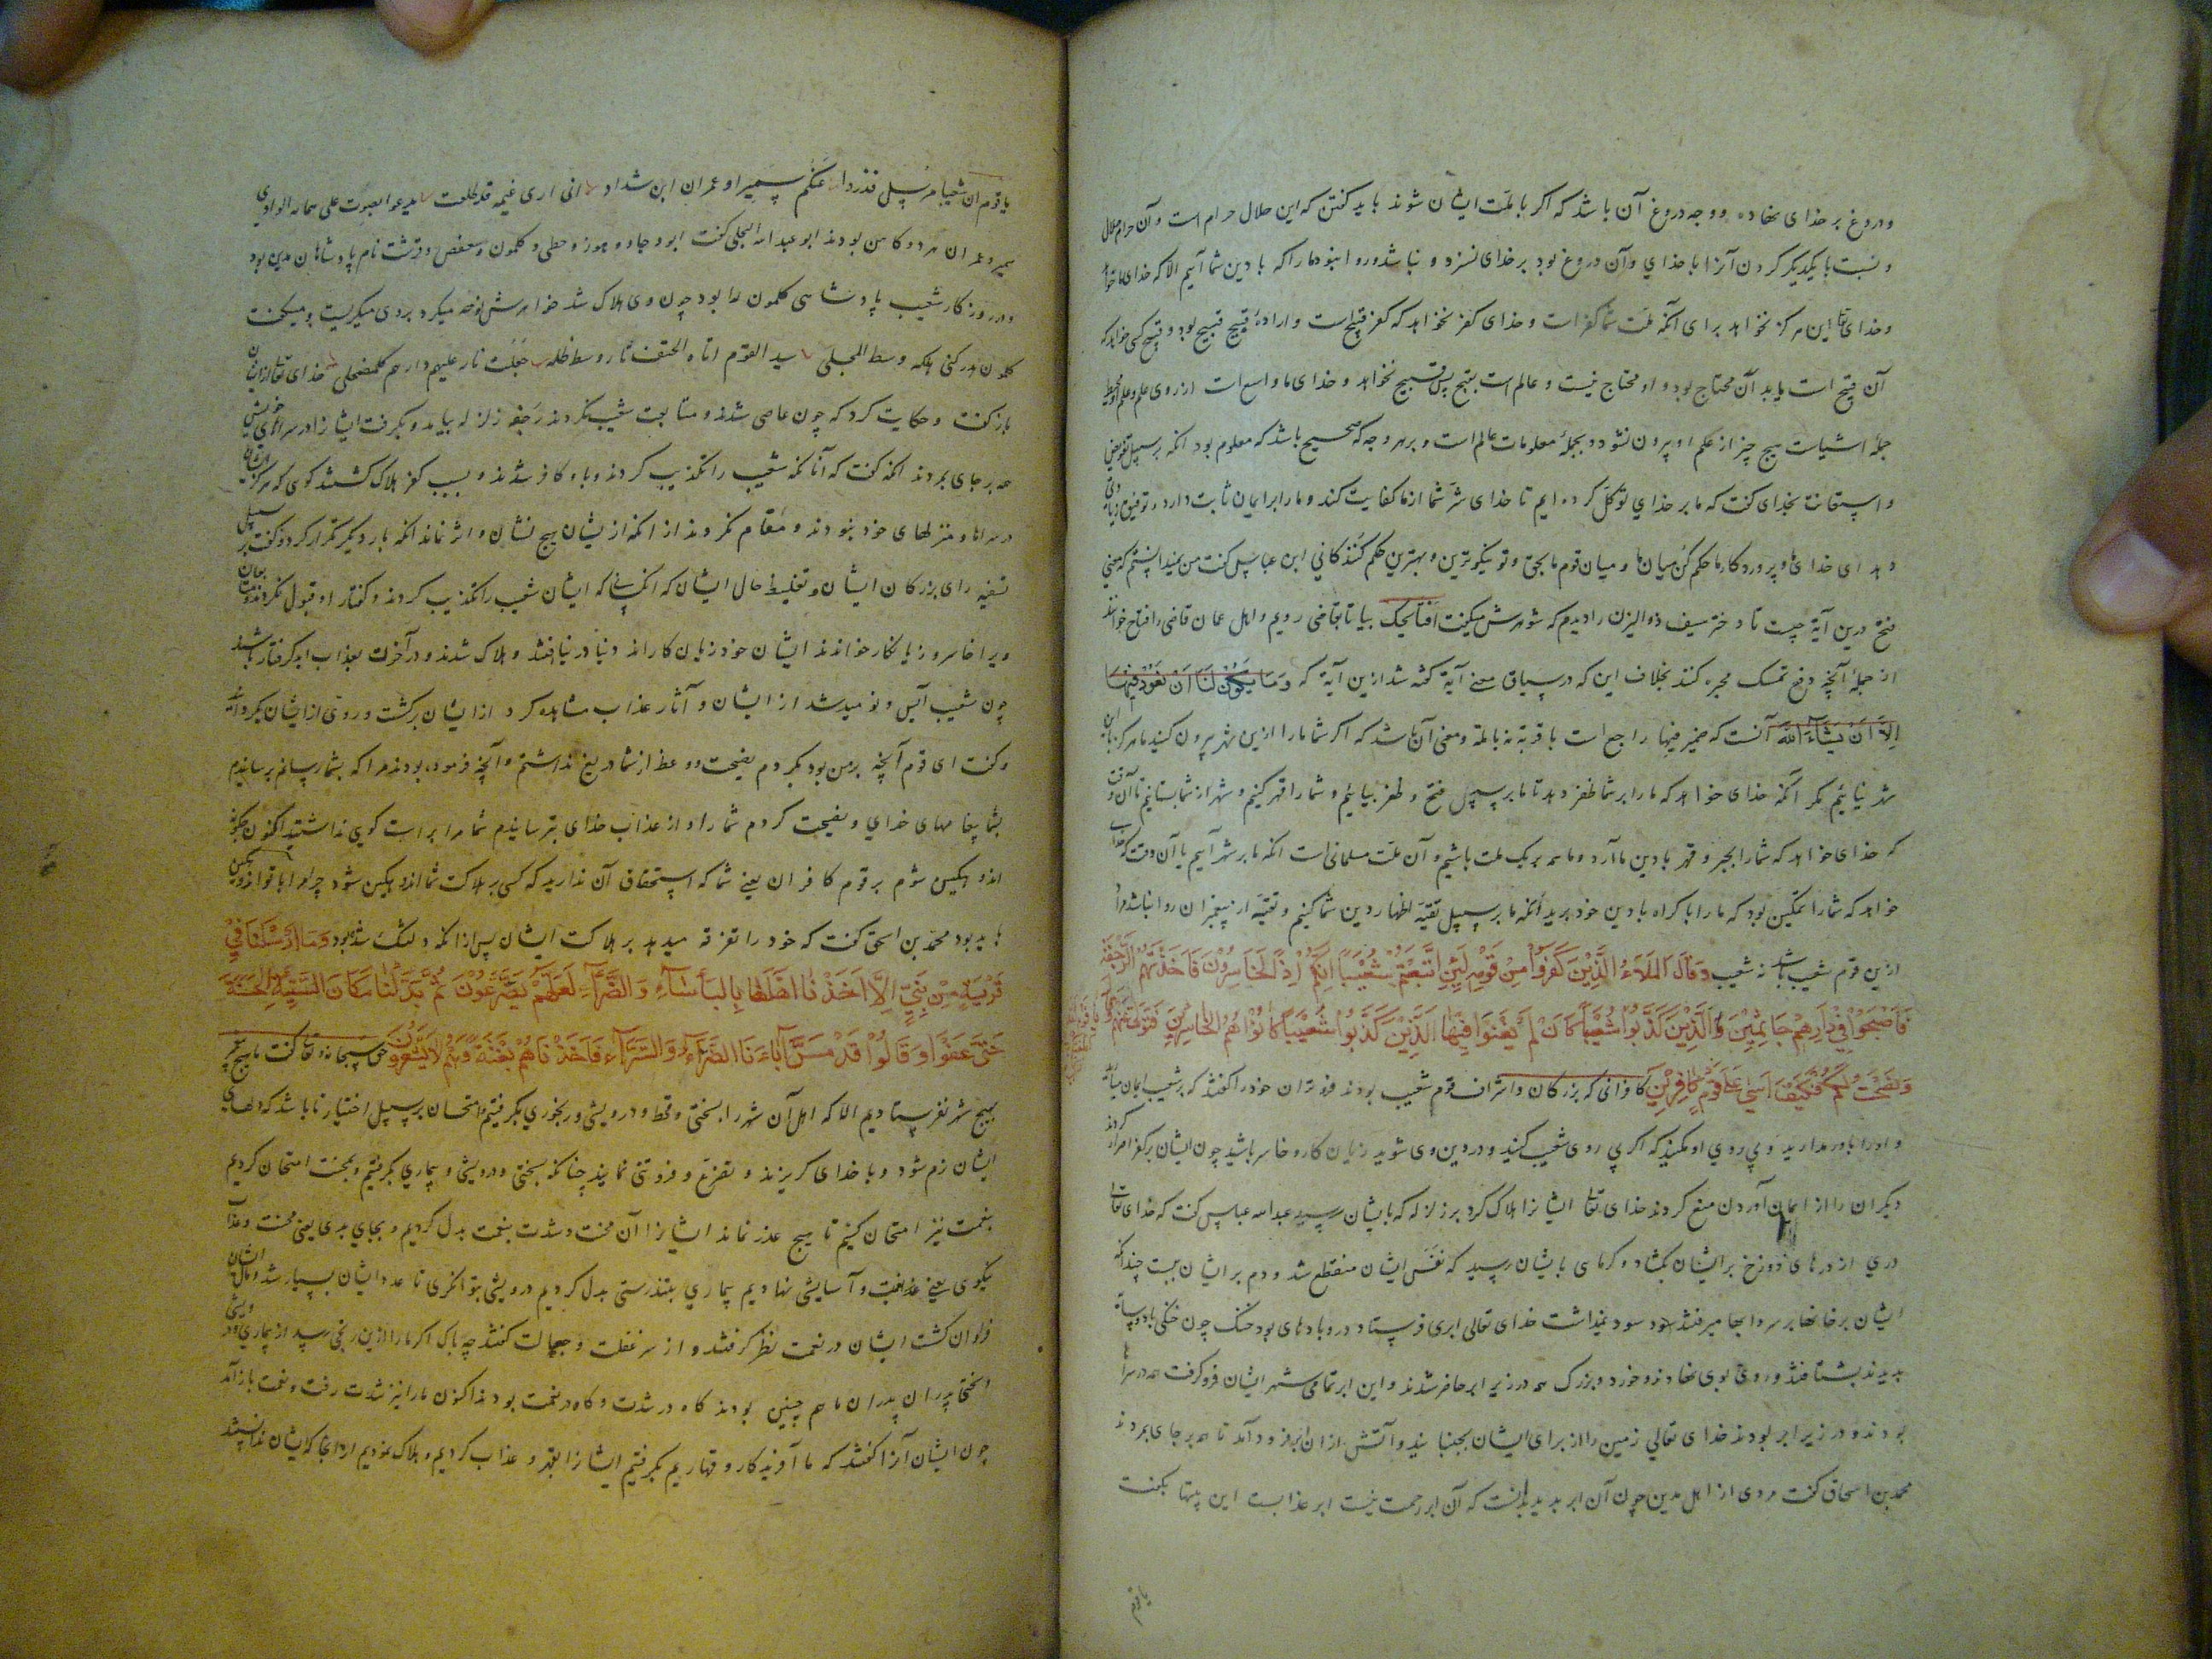 و دروغ بر خدای نهاده و وجه دروغ آن باشد که اکر با ملت ایشان شوند باید کفتن که این حلال حرام است و آن حرام حلال
و نسبت با یکدیکر کردن آنرا با خدای و آن دروغ بود بر خدای نسزد و نباشد و روا نبود ما را که با دین شما آییم الا که خدای ما خواهد
و خدای تعا این هرکز نخواهد برای آنکه ملت شما کفر است و خدای کفر نخواهد که کفر قبیح است و ارادهٔ قبیح قبیح بود و قبیح کسی خواهد که
آن قبیح است یا بد آن محتاج بود و او محتاج نیست و عالم است بقبح پس قبیح نخواهد و خدای ما واسع است از روی علم و علم او محیط
جملهٔ اشیاست هیچ چیز از علم او بیرون نشود و بجملهٔ معلومات عالم است و بر هر وجه که صحیح باشد که معلوم بود آنکه بر سبیل تفویض
و استعانت بخدای کفت که ما بر خدای توکل کرده ایم تا خدای شر شما از ما کفایت کند و ما را بر ایمان ثابت دارد و توفیق زیاده
دهد ای خدای ما و پروردکار ما حکم کن میان ما و میان قوم ما بحق و تو نیکوترین و بهترین حکم کنندکانی ابن عباس کفت من نمیدانستم که معنی
فتح درین آیة چیست تا دختر سیف ذو الیزن را دیدم که شوهرش میکفت افتاحک بیا تا بقاضی رویم و اهل عمان قاضی را فتاح خوانند
از جملهٔ آنچه دفع تمسک مجبره کند بخلاف این که در سیاق معنی آیة کفته شد ازین آیة که وَمَا يَكُونُ لَنَا أَنْ نَعُودَ فِيهَا
إِلَّا أَنْ يَشَاءَ اللَّهُ آنست که ضمیر فیها راجع است با قریة نه با ملة و معنی آن باشد که اکر شما ما را ازین شهر بیرون کنید ما هرکز با این
شهر نیائیم مکر آنکه خدای خواهد که ما را بر شما ظفر دهد تا ما بر سبیل فتح و ظفر بیائیم و شما را قهر کنیم و شهر از شما بستانیم تا آن وقت
که خدای خواهد که شما را بجبر و قهر با دین ما آرد و ما همه بر یک ملت باشیم و آن ملت مسلمانی است آنکه ما بر شهر آییم یا آن وقت که خدا
خواهد که شما را تمکین بود که ما را با کراه با دین خود برید آنکه ما بر سبیل تقیه اظهار دین شما کنیم و تقیه از پیغمبران روا نباشد مراد
ازین قوم شعیب باشد نه شعیب وَقَالَ الْمَلَأُ الَّذِينَ كَفَرُوا مِنْ قَوْمِهِ لَئِنِ اتَّبَعْتُمْ شُعَيْبًا إِنَّكُمْ إِذًا لَخَاسِرُونَ فَأَخَذَتْهُمُ الرَّجْفَةُ
فَأَصْبَحُوا فِي دَارِهِمْ جَاثِمِينَ الَّذِينَ كَذَّبُوا شُعَيْبًا كَأَنْ لَمْ يَغْنَوْا فِيهَا الَّذِينَ كَذَّبُوا شُعَيْبًا كَانُوا هُمُ الْخَاسِرِينَ فَتَوَلَّى عَنْهُمْ
وَنَصَحْتُ لَكُمْ فَكَيْفَ آسَى عَلَى قَوْمٍ كَافِرِينَ کافرانی که بزرکان و اشراف قوم شعیب بودند فروتران خود را کفتند که بر شعیب ایمان میارید
و او را باور مدارید و پی روی او مکنید که اکر پی روی شعیب کنید و در دین وی شوید زیان کار و خاسر باشید چون ایشان بر کفر اصرار کردند
دیکران را از ایمان آوردن منع کردند خدای تعا ایشانرا هلاک کرد بزلزله که بایشان رسید عبد الله عباس کفت که خدای تعالی
دری از درهای دوزخ بر ایشان بکشاد و کرمای بایشان رسید که نفس ایشان منقطع شد و دم بر ایشان ببست چندانکه
ایشان بر خانها بر سردابها میرفتند سود نمیداشت خدای تعالی ابری فرستاد درو بادهای بود خنک چون خنکی باد و سایه
بدیدند بشتافتند و روی بوی نهادند و خورد و بزرک همه در زیر ابر حاضر شدند و این ابر تمامی شهر ایشان فرو کرفت همه در سراها
بودند و در زیر ابر بودند خدای تعالی زمین را از برای ایشان بجنبانید و آتش از ان ابر فرود آمد تا همه بر جای بمردند
محمد بن اسحاق کفت مردی از اهل مدین چون آن ابر بدید بدانست که آن ابر رحمت نیست ابر عذابست این بیتها بکفت
یا قوم
یا قوم ان شعیبا مرسل فذروا عنکم سمیرا و عمران ابن شداد انی اری غیمة قد طلعت یدعوا بصوت علی صمانه الوادی
سمیر و عمران هر دو کاهن بودند ابو عبد الله البجلی کفت ابو جاد و هوز و حطی و کلمون و سعفص و قرشت نام پادشاهان مدین بود
و در روزکار شعیب پادشاهی کلمون را بود چون وی هلاک شد خواهرش نوحه میکرد بر وی میکریست و میکفت
کلمون هد رکنی هلکه وسط المحلی سید القوم اتاه الحتف نار وسط ظله جعلت نار علیهم دارهم کالمضمحلی خدای تعالی از ایشان
باز کفت و حکایت کرد که چون عاصی شدند و متابعت شعیب نکردند رجفه زلزله بیامد و بکرفت ایشانرا در سرای خویش
همه بر جای بمردند آنکه کفت که آنانکه شعیب را تکذیب کردند و باو کافر شدند و بسبب کفر هلاک کشتند کوی که هرکز ایشان
در سراها و منزلهای خود نبودند و مقام نکردند از آنکه از یشان هیچ نشان و اثر نماند آنکه بار دیکر تکرار کرد و کفت بر سبیل
تسفیه رای بزرکان ایشان و تغلیظ حال ایشان که آنکسانی که ایشان شعیب را تکذیب کردند و کفتار او قبول نکردند و بهتان
ویرا خاسر و زیانکار خواندند ایشان خود زیان کارانند دنیا در نیافتند و هلاک شدند و در آخرت بعذاب ابد کرفتار باشند
چون شعیب آیس و نومید شد از ایشان و آثار عذاب مشاهده کرد از ایشان برکشت و روی از ایشان بکردانید
و کفت ای قوم آنچه بر من بود بکردم نصیحت و وعظ از شما دریغ نداشتم و آنچه فرموده بودند مرا که بشما رسانم برسانیدم
بشما پیغامهای خدای و نصیحت کردم شما را و از عذاب خدای بترسانیدم شما مرا براست کوی نداشتید اکنون چکونه
اندوهکین شوم بر قوم کافران یعنی شما که استحقاق آن ندارید که کسی بر هلاکت شما اندوهکین شود چرا
باید بود محمد بن اسحق کفت که خود را تعزیه میدهد بر هلاکت ایشان پس از آنکه دلتنک شده بود وَمَا أَرْسَلْنَا فِي
قَرْيَةٍ مِنْ نَبِيٍّ إِلَّا أَخَذْنَا أَهْلَهَا بِالْبَأْسَاءِ وَالضَّرَّاءِ لَعَلَّهُمْ يَضَّرَّعُونَ ثُمَّ بَدَّلْنَا مَكَانَ السَّيِّئَةِ الْحَسَنَةَ
حَتَّى عَفَوْا وَقَالُوا قَدْ مَسَّ آبَاءَنَا الضَّرَّاءُ وَالسَّرَّاءُ فَأَخَذْنَاهُمْ بَغْتَةً وَهُمْ لَا يَشْعُرُونَ حق سبحانه و تعا کفت ما هیچ پیغمبر
بهیچ شهر نفرستادیم الا که اهل آن شهر را بسختی و قحط و درویشی و رنجوری بکرفتیم و امتحان بر سبیل اختبار تا باشد که دلهای
ایشان نرم شود و با خدای کریزند و تضرع و فروتنی نمایند چنانکه بسختی و درویشی و بیماری بکرفتیم و بمحنت امتحان کردیم
بنعمت نیز امتحان کنیم تا هیچ عذر نماند ایشانرا آن محنت و شدت بنعمت بدل کردیم و بجای بدی یعنی محنت و عذاب
نیکوی یعنی و آسایش نهادیم بیماری بتندرستی بدل کردیم درویشی بتوانکری تا عدد ایشان بسیار شد و مال ایشان
فراوان کشت ایشان در نعمت بطر کرفتند و از سر غفلت و جهالت کفتند چه باک اکر ما را ازین رنجی رسید از بیماری و درویشی
و سختی پدران ما هم چنین بودند کاه در شدت و کاه در نعمت بودند اکنون ما را نیز شدت رفت و نعمت باز آمد
چون ایشان آنرا کفتند که ما آفریدکار و قهاریم بکرفتیم ایشانرا بقهر و عذاب کردیم و هلاک نمودیم از آنجا که ایشان ندانستند